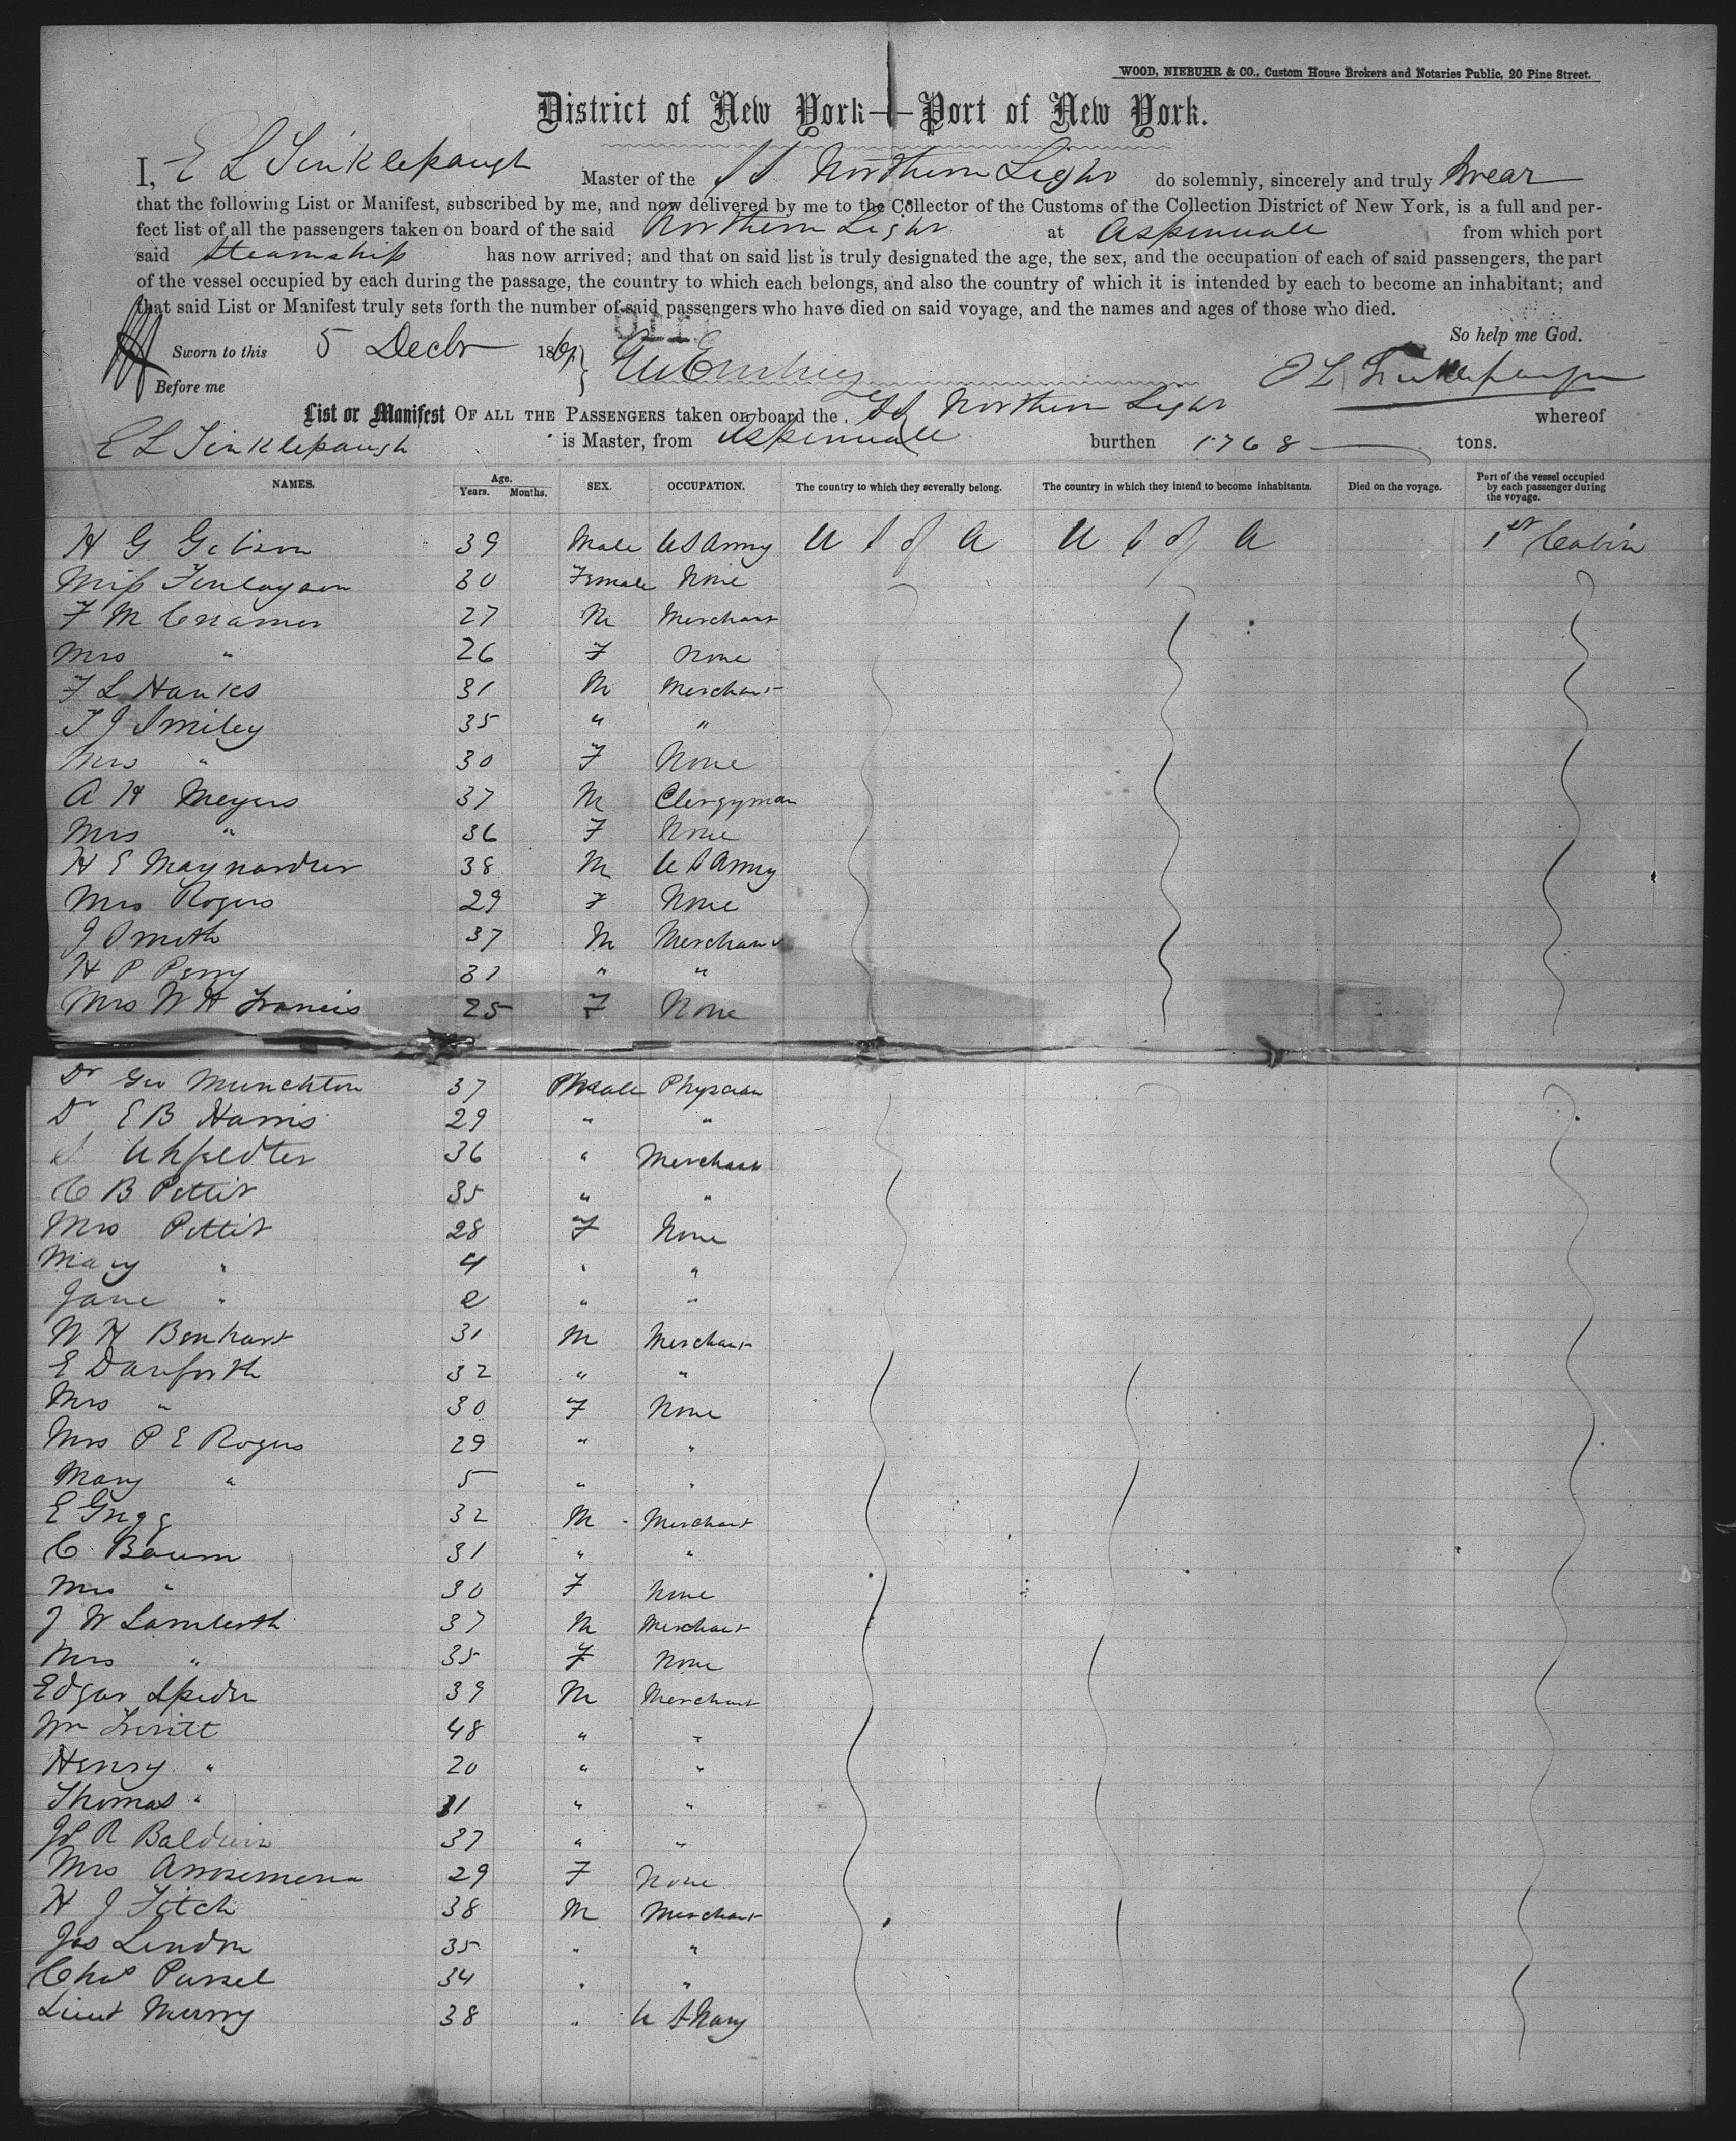 WOOD, NIEBUHR & CO., Custom House Brokers and Notaries Public, 20 Pine Street.
District of New York—Port of New York.
I, E L Tinklepaugh Master of the SS Northern Light do solemnly, sincerely and truly swear
that the following List or Manifest, subscribed by me, and now delivered by me to the Collector of the Customs of the Collection District of New York, is a full and per-
fect list of all the passengers taken on board of the said Northern Light at Aspinwall from which port
said Steamship has now arrived; and that on said list is truly designated the age, the sex, and the occupation of each of said passengers, the part
of the vessel occupied by each during the passage, the country to which each belongs, and also the country of which it is intended by each to become an inhabitant; and
that said List or Manifest truly sets forth the number of said passengers who have died on said voyage, and the names and ages of those who died.
So help me God.
Sworn to this 5 Decbr 1861
Before me E L Tinklepaugh
List or Manifest OF ALL THE PASSENGERS taken on board the SS Northern Light whereof
E L Tinklepaugh is Master, from Aspinwall burthen 1768 tons.
NAMES. Age. Years. Months. SEX. OCCUPATION. The country to which they severally belong. The country in which they intend to become inhabitants. Died on the voyage. Part of the vessel occupied by each passenger during the voyage.
H G Gibson 39 Male U S Army U S of A U S of A 1st Cabin
Miss Finlayson 30 Female None
F M Cramer 27 M Merchant
Mrs " 26 F None
F L Hanks 31 M Merchant
T J Smiley 35 " "
Mrs " 30 F None
A H Meyers 37 M Clergyman
Mrs " 36 F None
H E Maynardier 38 M U S Army
Mrs Rogers 29 F None
J Smith 37 M Merchant
H P Perry 31 " "
Mrs W H Francis 25 F None
Dr Geo Munckton 37 Male Physcian
Dr E B Harris 29 " "
S Uhfeldter 36 " Merchant
C B Pettit 35 " "
Mrs Pettit 28 F None
Mary " 4 " "
Jane " 2 " "
W H Benhart 31 M Merchant
E Danforth 32 " "
Mrs " 30 F None
Mrs P E Rogers 29 " "
Mary " 5 " "
E Grigg 32 M Merchant
C Baum 31 " "
Mrs " 30 F None
J W Lamberth 37 M Merchant
Mrs " 35 F None
Edgar 39 M Merchant
Wm Truitt 48 " "
Henry " 20 " "
Thomas " 31 " "
R Baldwin 37 " "
Mrs Arosemena 29 F None
H J Fitch 38 M Merchant
Jas Lindon 35 " "
Chas Pursel 34 " "
Lieut Murry 38 " U S Navy